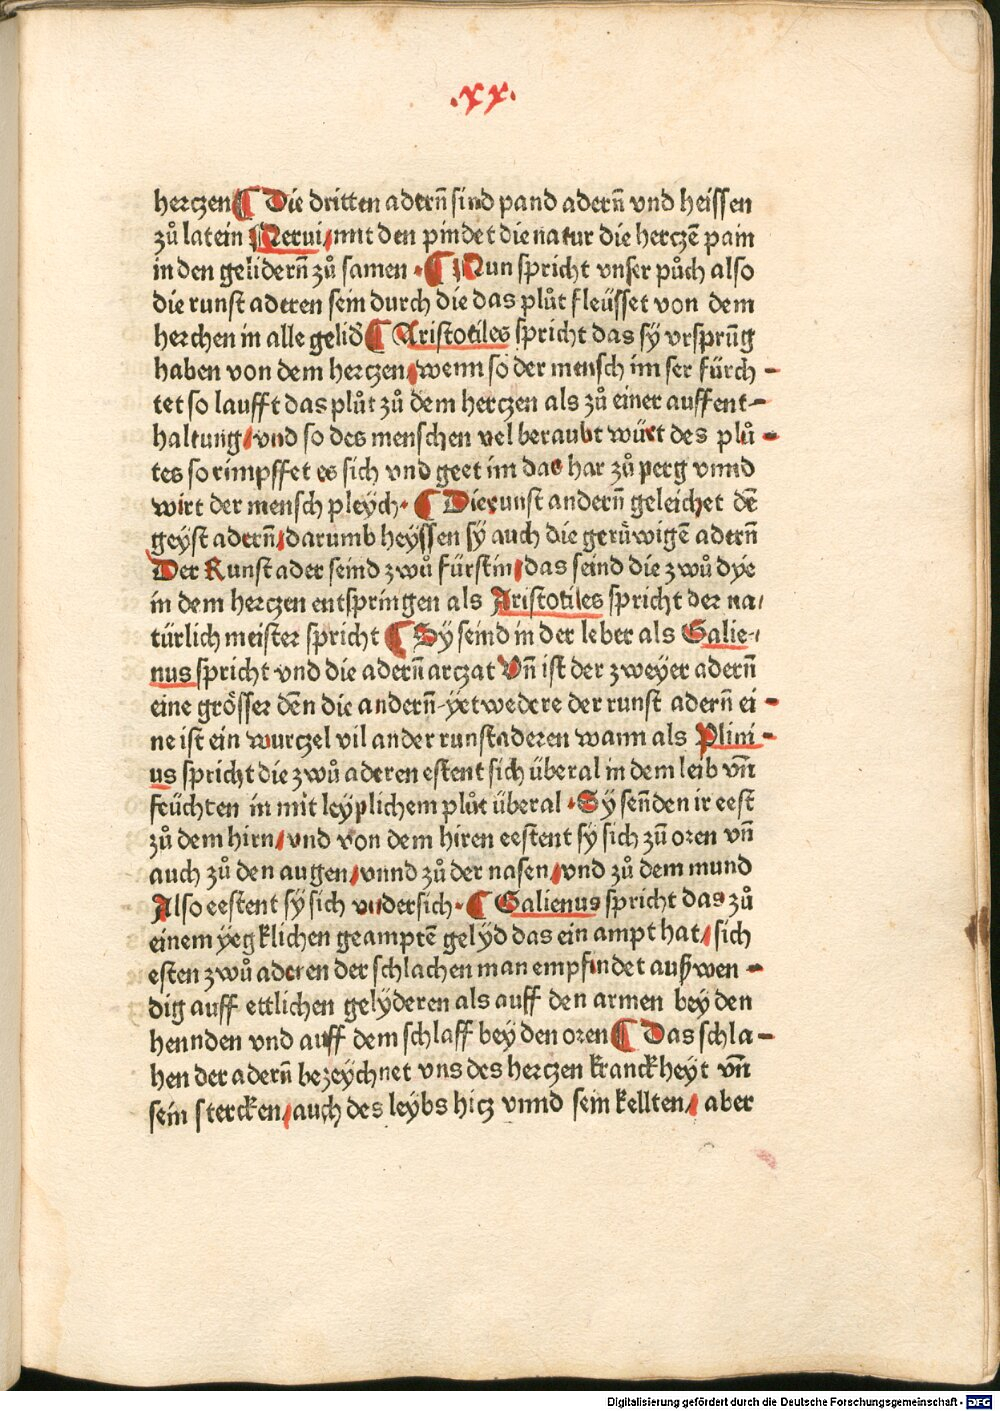 .xx.
herczen ¶ Die dritten adern̄ sind pand adern̄ vnd heissen
zů latein Nerui/ mit den pindet die natur die herczē pain
in den gelidern̄ zů samen · ¶ Nun spricht vnser půch also
die runst aderen sein durch die das plůt fleüsset von dem
herchen in alle gelid̄ ¶ Aristotiles spricht das sÿ vrsprūg
haben von dem herczen/ wenn so der mensch im ser fürch-
tet so laufft das plůt zů dem herczen als zů einer auffent-
haltung/ vnd so des menschen vel beraubt würt des plů-
tes so rimpffet es sich vnd geet im das har zů perg vnnd
wirt der mensch pleÿch · ¶ Die runst andern̄ geleichet dē
geÿst adern̄/ darumb heÿssen sÿ auch die gerüwigē adern̄
Der Runst ader seind zwů fürstin/ das seind die zwů dÿe
in dem herczen entspringen als Aristotiles spricht der na/
türlich meister spricht ¶ Sÿ seind in der leber als Galie-
nus spricht vnd die adern̄ arczat Vn̄ ist der zweÿer adern̄
eine grösser dēn die andern̄ · ÿetwedere der runst adern̄ ei-
ne ist ein wurczel vil ander runstaderen wann als Plini-
us spricht die zwů aderen estent sich überal in dem leib vn̄
feüchten in mit leÿplichem plůt überal · Sÿ sen̄den ir eest
zů dem hirn/ vnd von dem hiren eestent sÿ sich zū oren vn̄
auch zů den augen/ vnnd zů der nasen/ vnd zů dem mund
Also eestent sÿ sich vndersich · ¶ Galienus spricht das zů
einem ÿegklichen geamptē gelÿd das ein ampt hat/ sich
esten zwů aderen der schlachen man empfindet außwen-
dig auff ettlichen gelÿderen als auff den armen beÿ den
hennden vnd auff dem schlaff beÿ den oren ¶ Das schla-
hen der adern̄ bezeÿchnet vns des herczen kranckheÿt vn̄
sein stercken/ auch des leÿbs hicz vnnd sein kellten/ aber
Digitalisierung gefördert durch die Deutsche Forschungsgemeinschaft - DFG